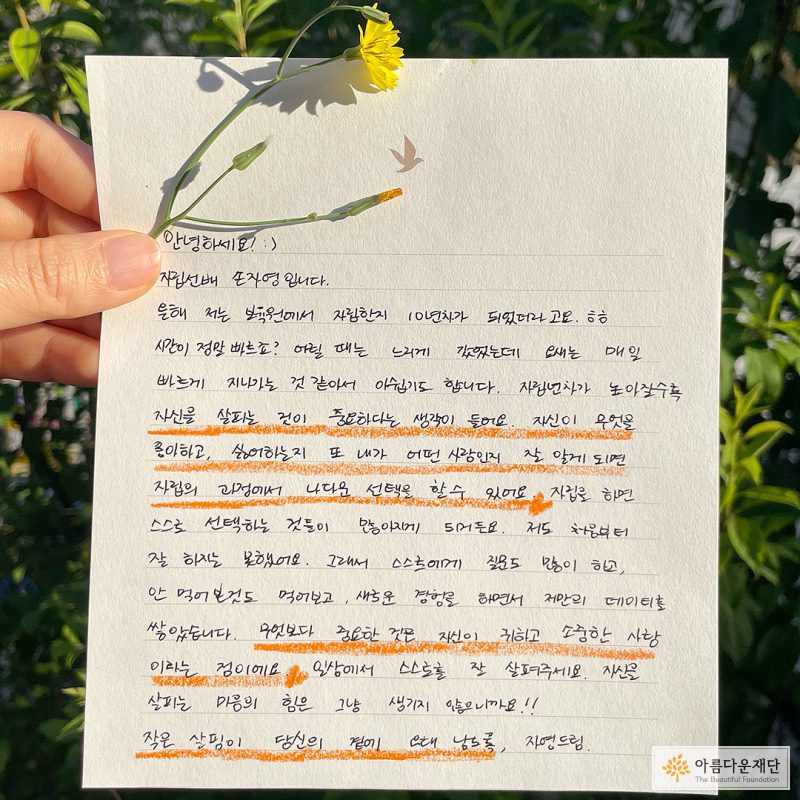 안녕하세요! :)
자립선배 손자영입니다.
올해 저는 보육원에서 자립한지 10년차가 되었더라고요. ㅎㅎ
시간이 정말 빠르죠? 어릴 때는 느리게 갔었는데 요새는 매일
빠르게 지나가는 것 같아서 아쉽기도 합니다. 자립년차가 높아질수록
자신을 살피는 것이 중요하다는 생각이 들어요. 자신이 무엇을
좋아하고, 싫어하는지 또 내가 어떤 사람인지 잘 알게 되면
자립의 과정에서 나다운 선택을 할 수 있어요. 자립을 하면
스스로 선택하는 것들이 많아지게 되거든요. 저도 처음부터
잘 하지는 못했어요. 그래서 스스로에게 질문도 많이 하고,
안 먹어본것도 먹어보고, 새로운 경험을 하면서 저만의 데이터를
쌓았습니다. 무엇보다 중요한 것은 자신이 귀하고 소중한 사람
이라는 점이에요. 일상에서 스스로를 잘 살펴주세요. 자신을
살피는 마음의 힘은 그냥 생기지 않으니까요!!
작은 살핌이 당신의 곁에 오래 남도록, 자영드림.
아름다운재단
The Beautiful Foundation